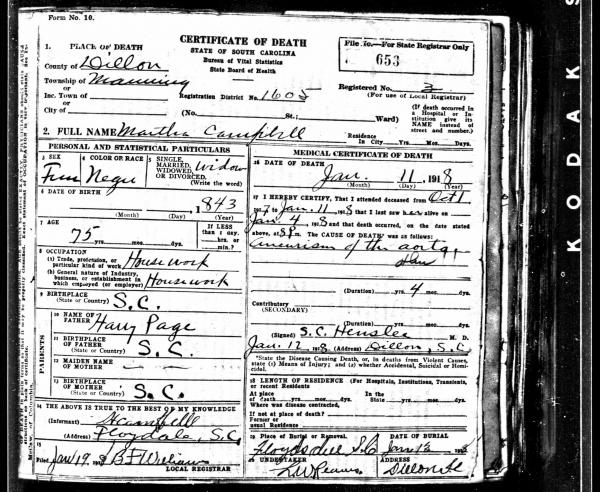 Form No. 10.
CERTIFICATE OF DEATH
STATE OF SOUTH CAROLINA
Bureau of Vital Statistics
State Board of Health
File No.—For State Registrar Only
653
1. PLACE OF DEATH
County of Dillon
Township of Manning
or
Inc. Town of
or
City of
Registration District No. 1605
Registered No. 3
(For use of Local Registrar)
(No. St.; Ward)
(If death occurred in a Hospital or Institution give its NAME instead of street and number.)
2. FULL NAME Martha Campbell
Residence In City Yrs. Mos. Days.
PERSONAL AND STATISTICAL PARTICULARS
3 SEX Fem
4 COLOR OR RACE Negro
5 SINGLE, MARRIED, WIDOWED, OR DIVORCED. Widow
(Write the word)
6 DATE OF BIRTH
1843
(Month) (Day) (Year)
7 AGE
75 yrs. mos. days
IF LESS than 1 day, hrs. or min.?
8 OCCUPATION
(a) Trade, profession, or particular kind of work Housework
(b) General nature of Industry, business, or establishment in which employed (or employer) Housework
9 BIRTHPLACE
(State or Country) S.C.
PARENTS
10 NAME OF FATHER Harry Page
11 BIRTHPLACE OF FATHER S.C.
(State or Country)
12 MAIDEN NAME OF MOTHER
13 BIRTHPLACE OF MOTHER S.C.
(State or Country)
14 THE ABOVE IS TRUE TO THE BEST OF MY KNOWLEDGE
(Informant) Campbell
(Address) Floydale, S.C.
15
Filed Jan 19 1918
LOCAL REGISTRAR
MEDICAL CERTIFICATE OF DEATH
16 DATE OF DEATH
Jan. 11, 1918
(Month) (Day) (Year)
17 I HEREBY CERTIFY, That I attended deceased from Oct 1
1917 to Jan. 11 1918 that I last saw her alive on
Jan. 4 1918 and that death occurred, on the date stated
above, at 8 P. m. The CAUSE OF DEATH* was as follows:
aneurism of the aorta
(Duration) yrs. 4 mos. dys.
Contributory
(SECONDARY)
(Duration) yrs. mos. dys.
(Signed) S.C. Hensler M. D.
Jan. 12 1918 (Address) Dillon, S.C.
*State the Disease Causing Death, or, in deaths from Violent Causes, state (1) Means of Injury; and (2) whether Accidental, Suicidal or Homicidal.
18 LENGTH OF RESIDENCE (For Hospitals, Institutions, Transients, or recent Residents
At place of death yrs. mos. days.
In the State yrs. mos. dys.
Where was disease contracted,
If not at place of death?
Former or usual residence
19 Place of Burial or Removal.
DATE OF BURIAL
Jan 13 1918
20 UNDERTAKER
ADDRESS
KODAK S